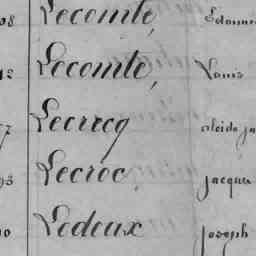 08 Lecomte, Edouard
12 Lecomte, Louis
77 Lecrecq
93 Lecroc, Jacques
Ledeux Joseph